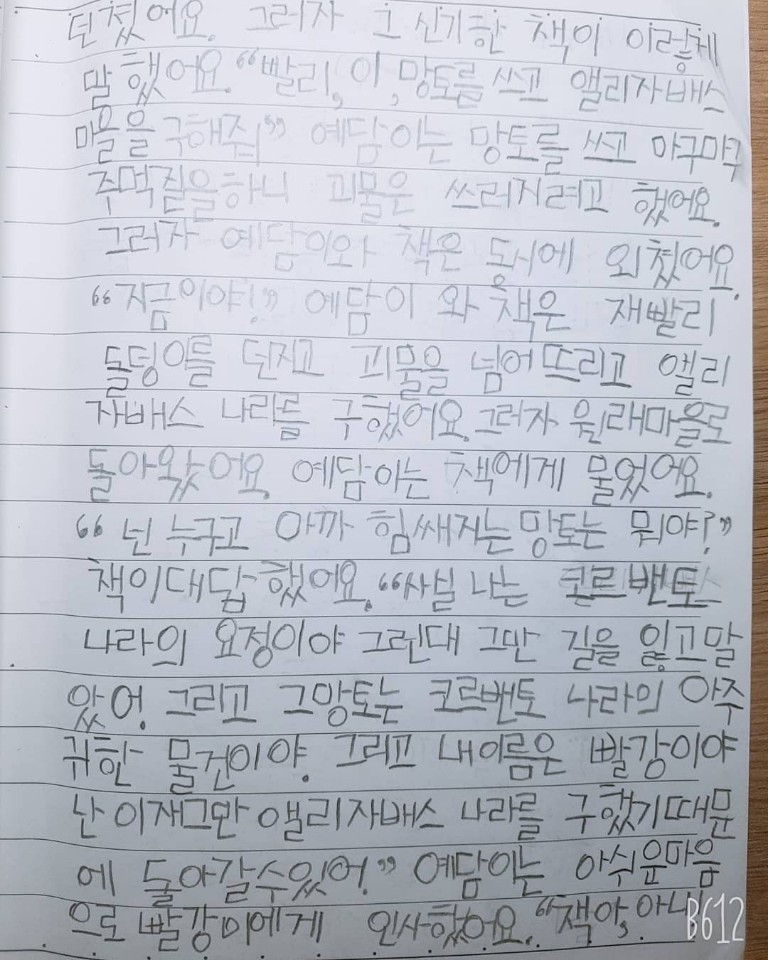 던졌어요. 그러자 그 신기한 책이 이렇게
말했어요. “빨리, 이, 망토를 쓰고 앨리자배스
마을을 구해줘” 예담이는 망토를 쓰고 마구마구
주먹질을하니 괴물은 쓰러지려고 했어요.
그러자 예담이와 책은 동시에 외쳤어요.
“지금이야!” 예담이 와 책은 재빨리
돌덩이를 던지고 괴물을 넘어뜨리고 엘리
자배스 나라를 구했어요. 그러자 원래마을로
돌아왔어요. 예담이는 책에게 물었어요.
“넌 누구고 아까 힘쌔지는 망토는 뭐야?”
책이대답했어요. “사실 나는 코르밴토
나라의 요정이야 그런대 그만 길을 잃고말
았어. 그리고 그망토는 코르밴토 나라의 아주
귀한 물건이야. 그리고 내이름은 빨강이야
난 이재그만 앨리자배스 나라를 구했기때문
에 돌아갈수있어.” 예담이는 아쉬운마음
으로 빨강이에게 인사했어요. “책아, 아니
B612